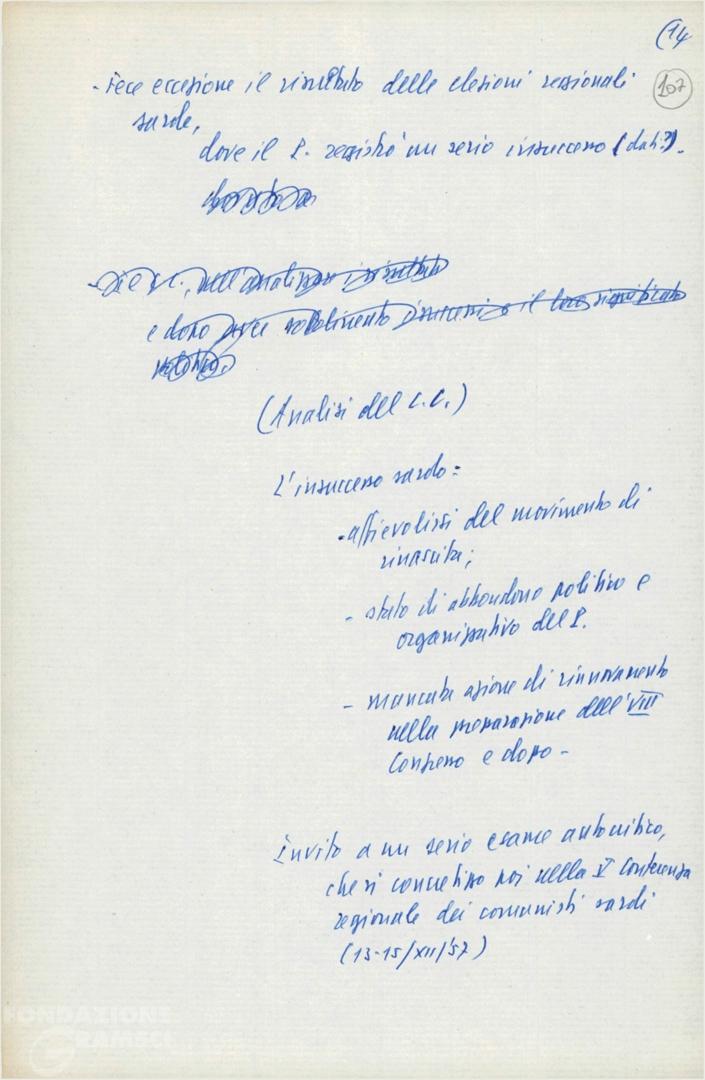 (14
107
- Fece eccezione il risultato delle elezioni regionali
sarde,
dove il P. registrò un serio insuccesso (dati?).
- Il C.C., nell'analizzare i risultati
e dopo aver sottolineato il loro significato
politico,
(Analisi del C.C.)
L'insuccesso sardo =
- affievolirsi del movimento di
rinascita;
- stato di abbandono politico e
organizzativo del P.
- mancata azione di rinnovamento
nella preparazione dell'VIII
Congresso e dopo -
Invito a un serio esame autocritico,
che si concretizzò poi nella V Conferenza
regionale dei comunisti sardi
(13-15/XII/57)
FONDAZIONE
GRAMSCI